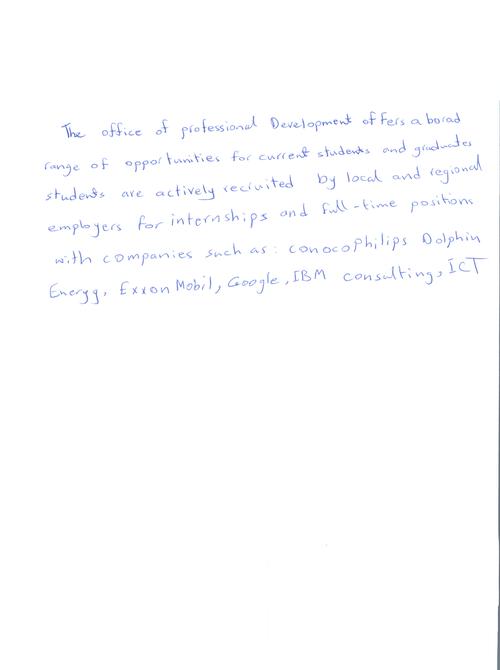 The office of professional Development offers a borad
range of opportunities for current students and graduates
students are actively recruited by local and regional
employers for internships and full-time positions
with companies such as: conocophilips Dolphin
Energy, ExxonMobil, Google, IBM consulting, ICT